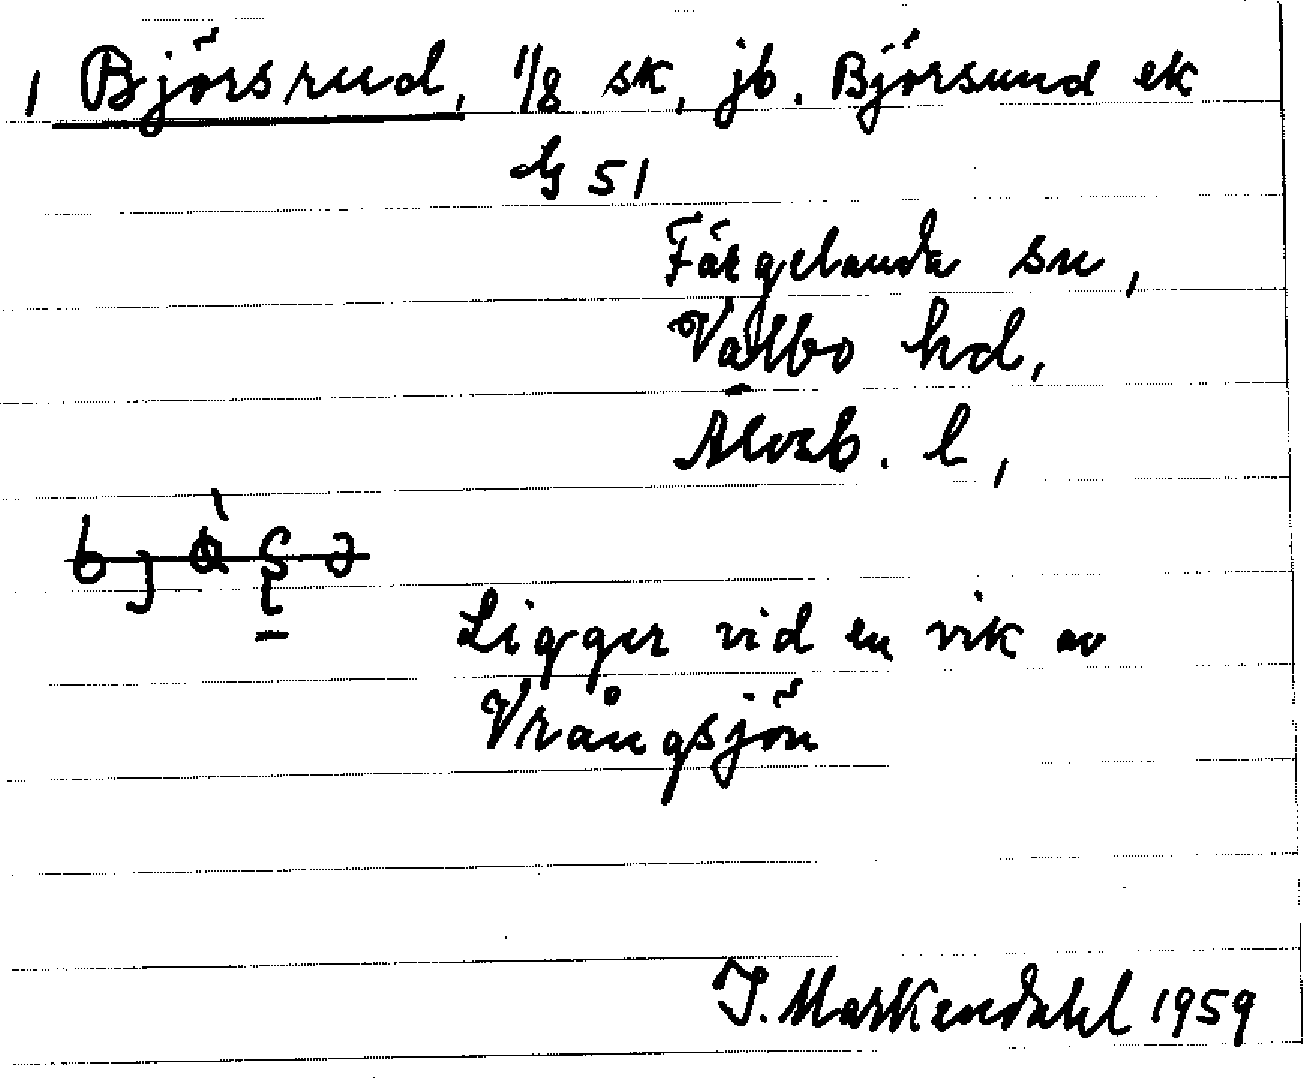 1 Björsrud, 1/8 sk, jb. Björsund ek
G 51
Färgelanda sn,
Valbo hd,
Älvsb. l,
Ligger vid en vik av
Vrångsjön
J. Markendahl 1959